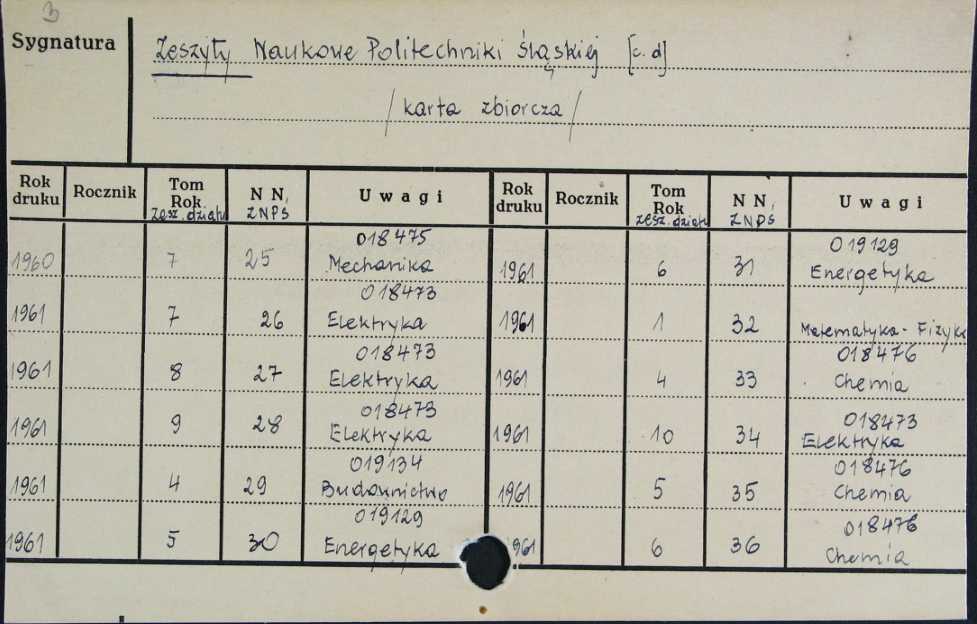 3
Sygnatura
Zeszyty Naukowe Politechniki Śląskiej [c.d]
/karta zbiorcza/
Rok druku Rocznik Tom Rok zesz. działu N N, ZNPS Uwagi Rok druku Rocznik Tom Rok zesz. działu N N, ZNPS Uwagi
1960 7 25 018475 Mechanika 1961 6 31 019129 Energetyka
1961 7 26 018473 Elektryka 1961 1 32 Matematyka-Fizyka
1961 8 27 018473 Elektryka 1961 4 33 018476 Chemia
1961 9 28 018473 Elektryka 1961 10 34 018473 Elektryka
1961 4 29 019134 Budownictwo 1961 5 35 018476 Chemia
1961 5 30 019129 Energetyka 1961 6 36 018476 Chemia